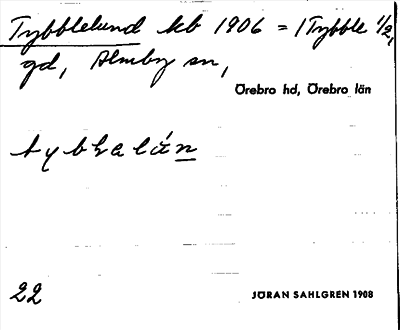 Tybblelund kb 1906 = 1 Tybble 1/2,
gd, Almby sn,
Örebro hd, Örebro län
22
JÖRAN SAHLGREN 1908